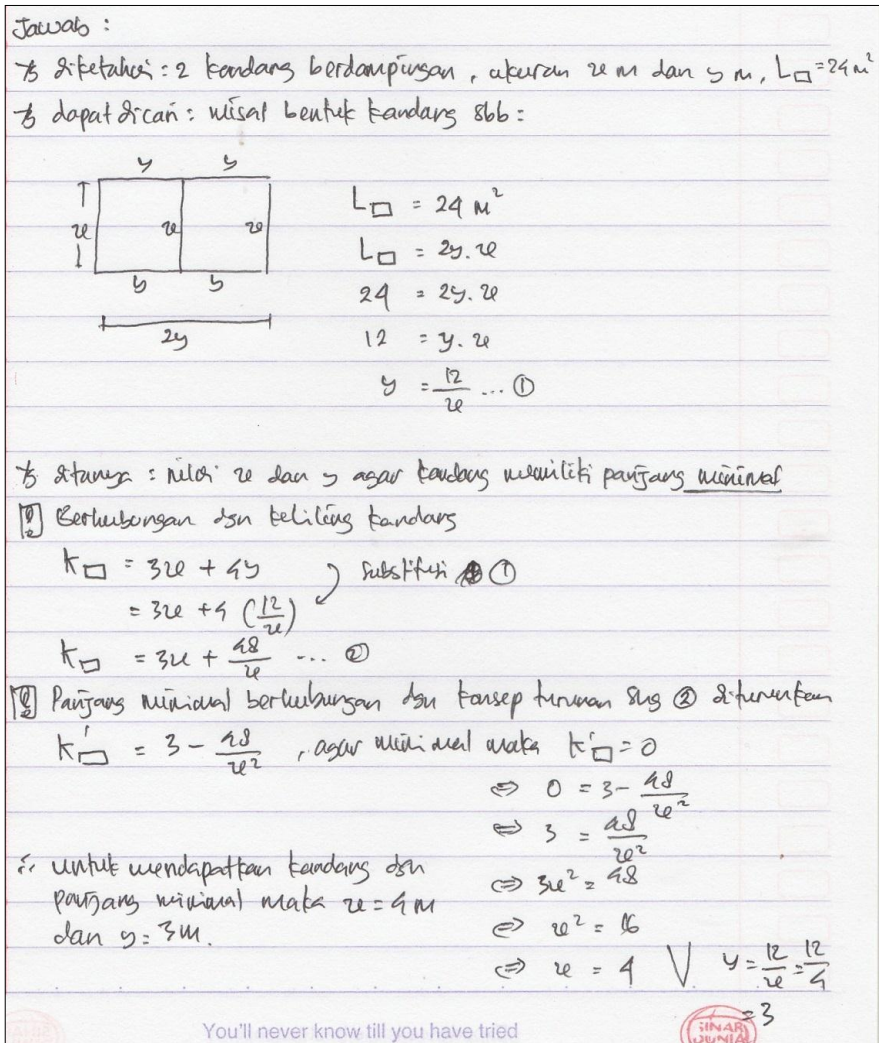 Jawab :
* diketahui : 2 kandang berdampingan, ukuran x m dan y m, L□ = 24 m²
* dapat dicari : misal bentuk kandang sbb :
y y
x x x
y y
2y
L□ = 24 m²
L□ = 2y . x
24 = 2y . x
12 = y . x
y = 12/x ... ①
* ditanya : nilai x dan y agar kandang memiliki panjang minimal
Berhubungan dgn keliling kandang
K□ = 3x + 4y
substitusi ①
= 3x + 4 (12/x)
K□ = 3x + 48/x ... ②
Panjang minimal berhubungan dgn konsep turunan shg ② diturunkan
K'□ = 3 - 48/x² , agar minimal maka K'□ = 0
⇔ 0 = 3 - 48/x²
⇔ 3 = 48/x²
⇔ 3x² = 48
⇔ x² = 16
⇔ x = 4 V y = 12/x = 12/4
= 3
∴ untuk mendapatkan kandang dgn
panjang minimal maka x = 4 m
dan y = 3 m.
You'll never know till you have tried
SINAR
DUNIA